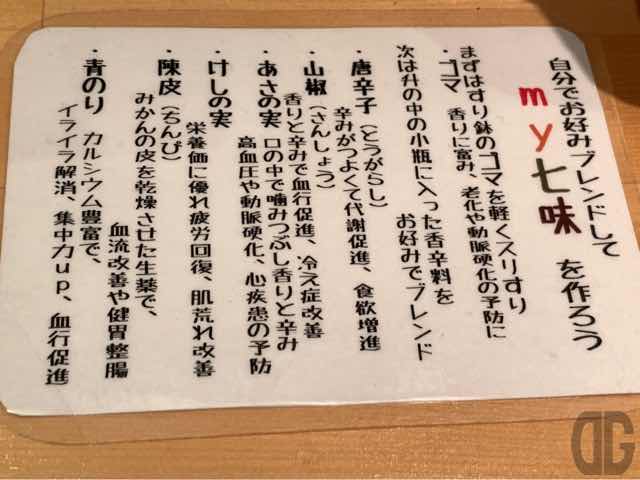 自分でお好みブレンドして
my七味 を作ろう
まずはすり鉢のゴマを軽くスリすり
・ゴマ 香りに富み、老化や動脈硬化の予防に
次は升の中の小瓶に入った香辛料を
お好みでブレンド
・唐辛子(とうがらし)
辛みがつよくて代謝促進、食欲増進
・山椒(さんしょう)
香りと辛みで血行促進、冷え症改善
・あさの実 口の中で噛みつぶし香りと辛み
高血圧や動脈硬化、心疾患の予防
・けしの実
栄養価に優れ疲労回復、肌荒れ改善
・陳皮(ちんぴ)
みかんの皮を乾燥させた生薬で、
血流改善や健胃整腸
・青のり カルシウム豊富で、
イライラ解消、集中力up、血行促進
DG